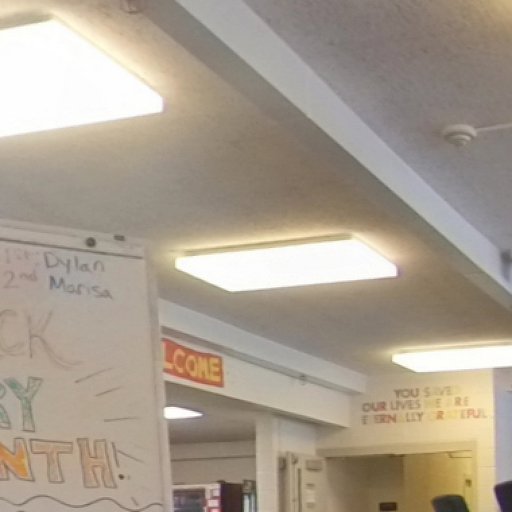 1st: Dylan
2nd Marisa
CK
RY
NTH!
LCOME
YOU SAVED
OUR LIVES WE ARE
ETERNALLY GRATEFUL